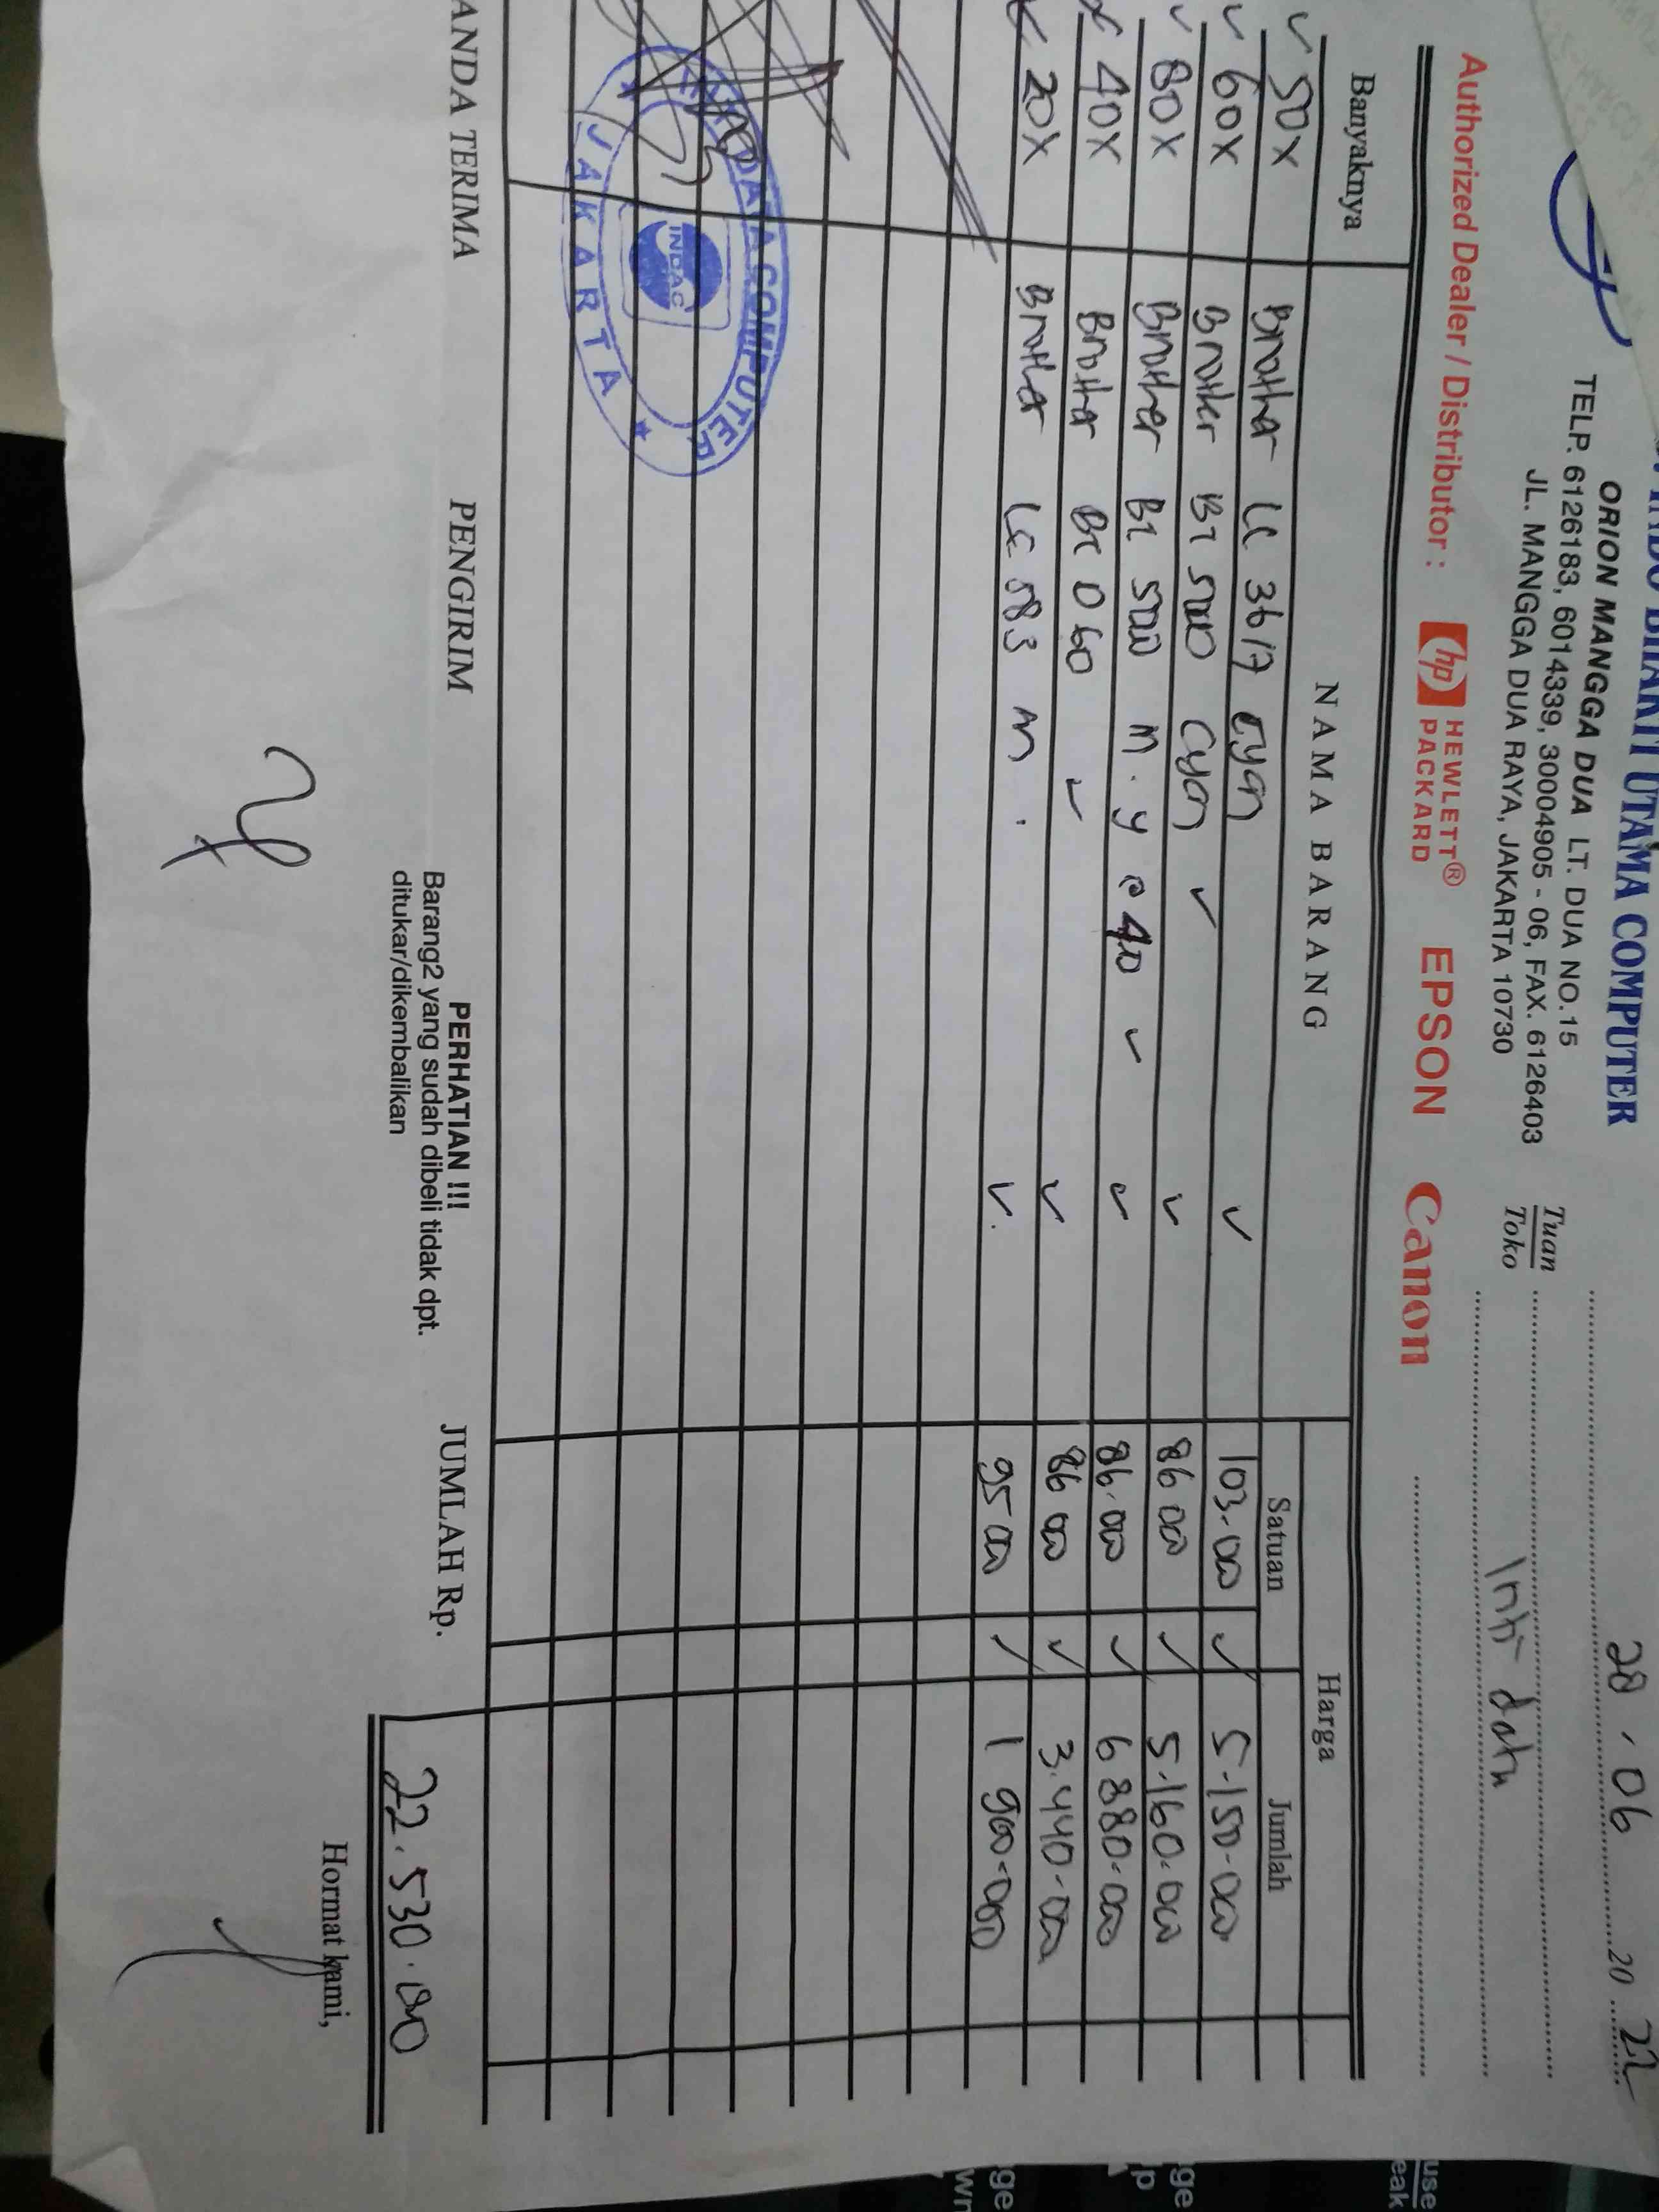 BHAKTI UTAMA COMPUTER
ORION MANGGA DUA LT. DUA NO.15
TELP. 6126183, 6014339, 30004905 - 06, FAX. 6126403
JL. MANGGA DUA RAYA, JAKARTA 10730
28 . 06 20 22
Tuan
Toko
Inti data
Authorized Dealer / Distributor : hp HEWLETT® PACKARD EPSON Canon
Banyaknya NAMA BARANG Harga
Satuan Jumlah
50X Brother LC 3617 Cyan 103.000 5.150.000
60X Brother BT 5000 Cyan 86 000 5.160.000
80X Brother BT 5000 M . Y @ 40 86.000 6 880.000
40X Brother BT D 60 86 000 3.440.000
20X Brother LC 583 M . 95 000 1 900.000
DATA COMPUTER
INDAC
JAKARTA
ANDA TERIMA PENGIRIM
PERHATIAN !!!
Barang2 yang sudah dibeli tidak dpt.
ditukar/dikembalikan
JUMLAH Rp. 22.530.000
Hormat kami,
use
eak
ge
p
ge
wn